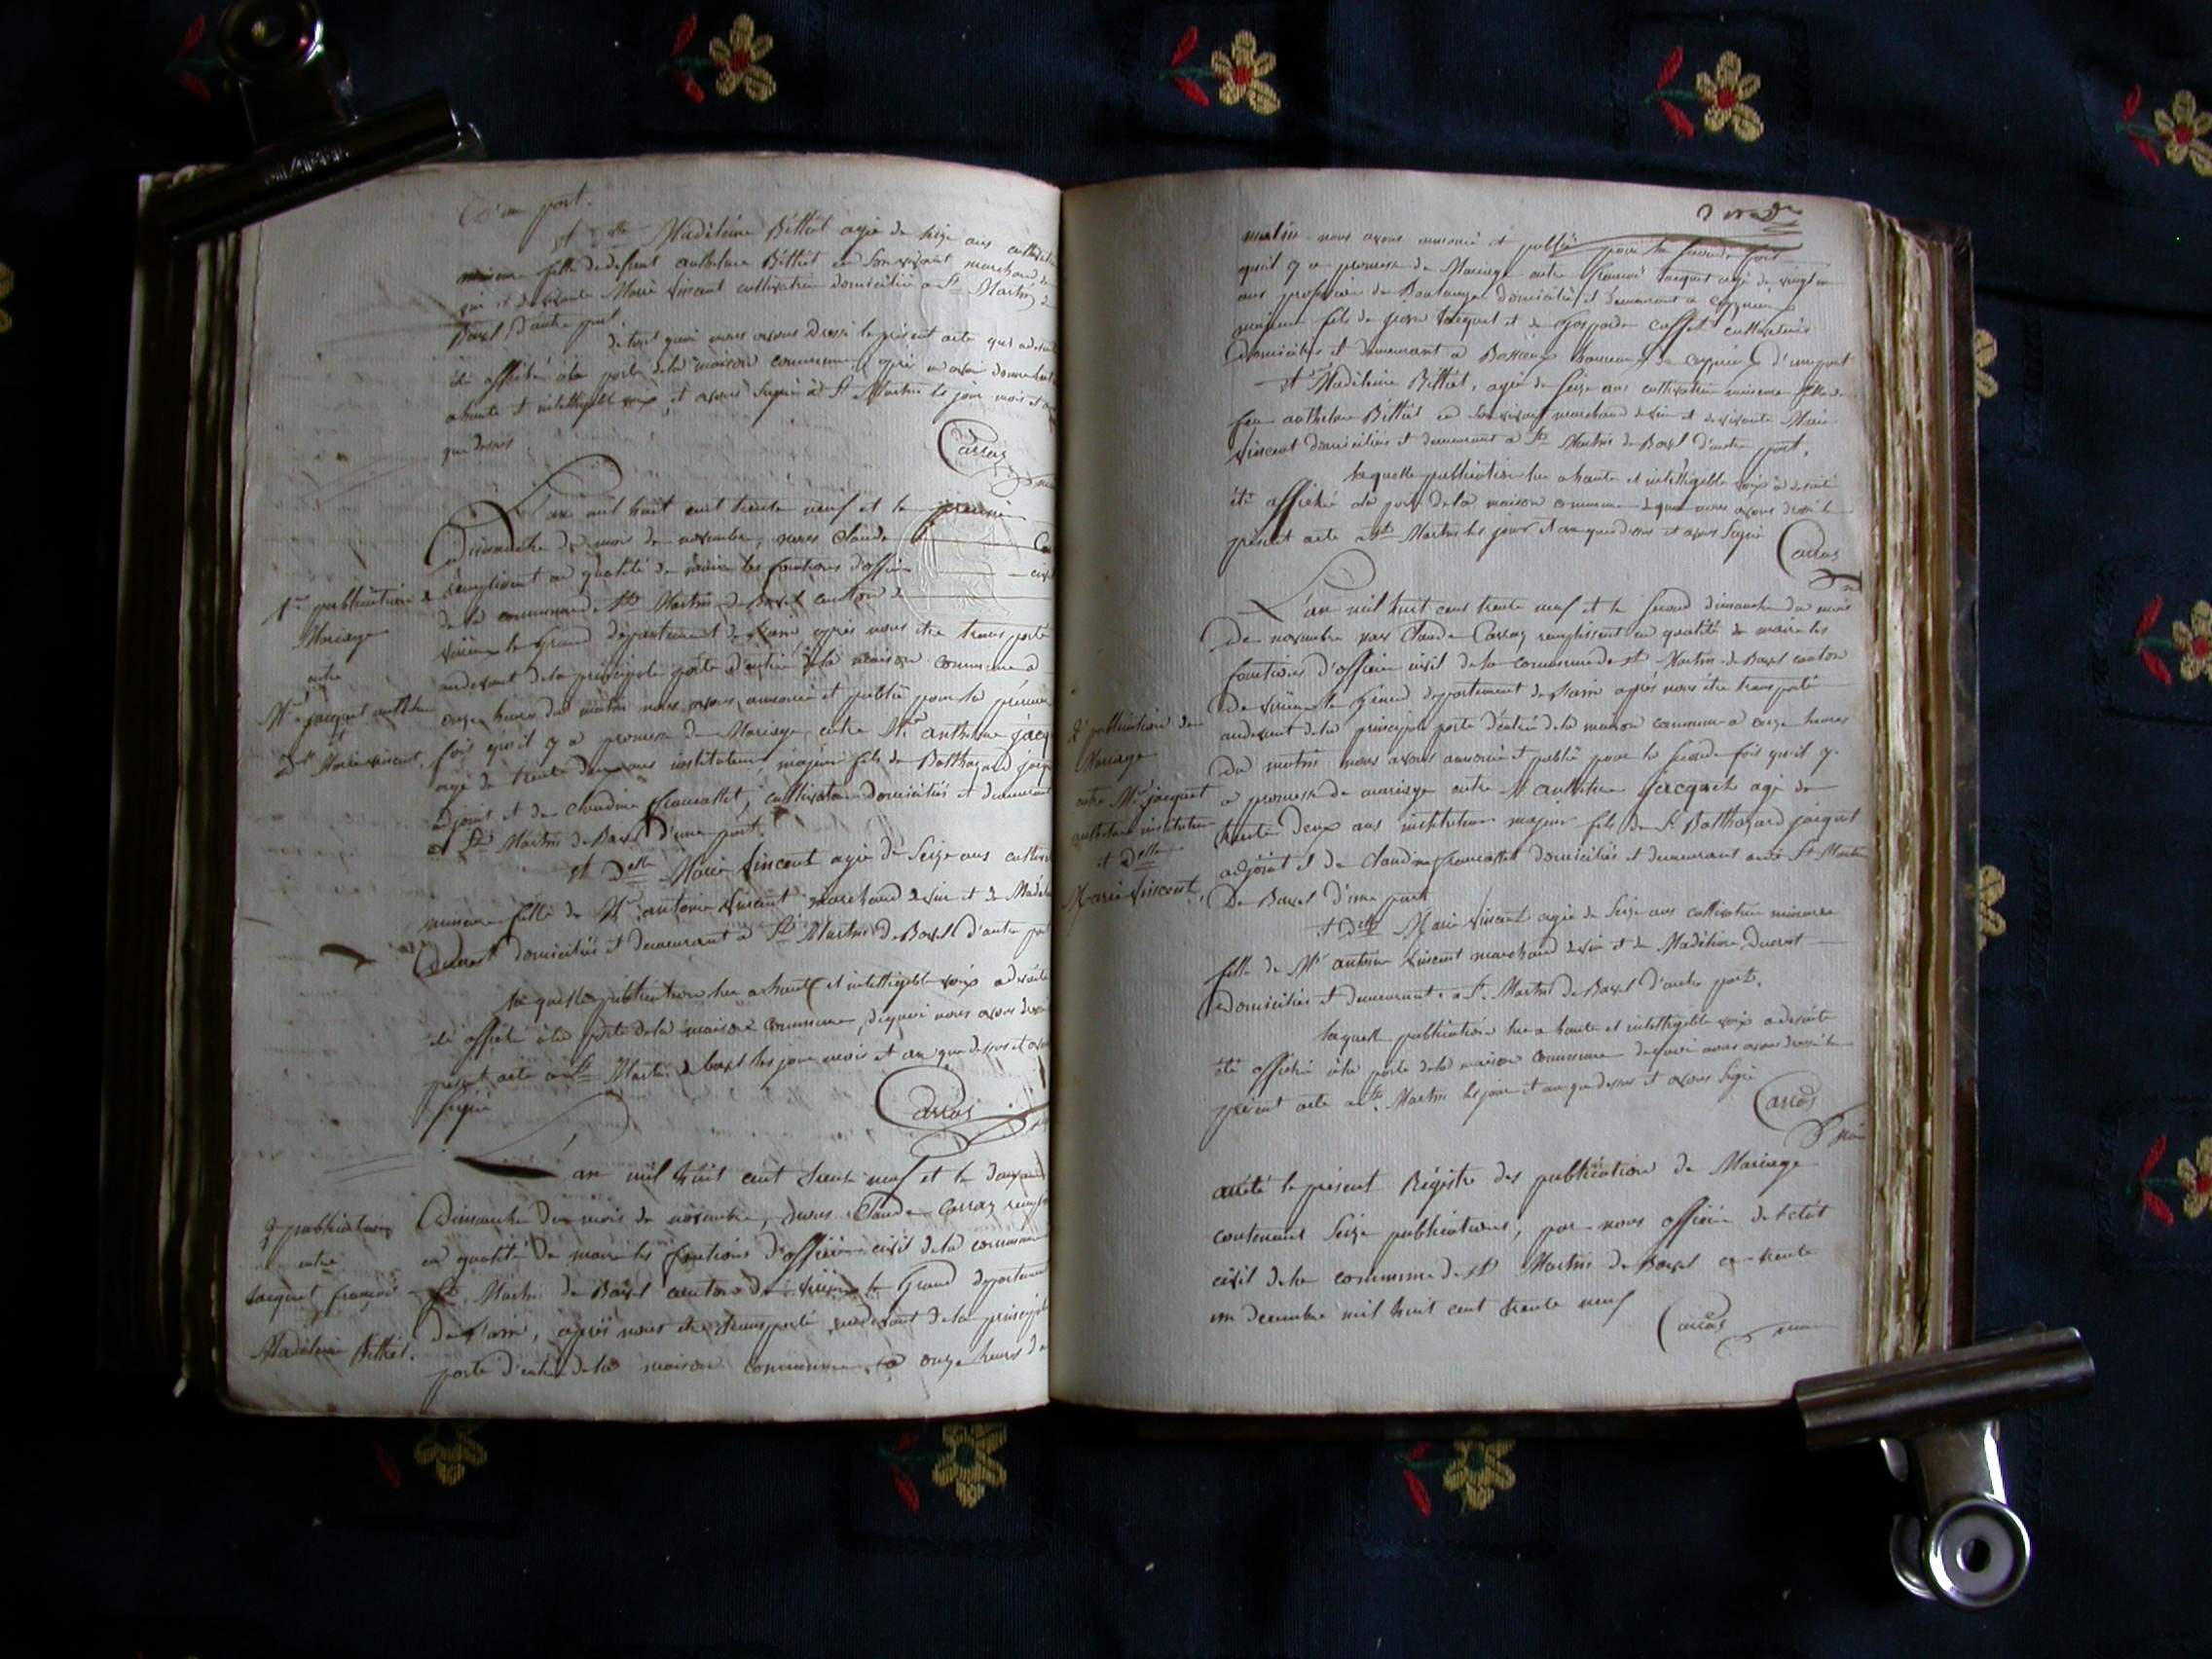 D'une part.
et Delle Madeleine Billiet agée de seize ans cultivatrice
mineure fille de defunt anthelme Billiet en son vivant marchand de
vin et de vivante Marie Vincent cultivatrice domiciliée a St Martin de
Bavel, d'autre part.
de tout quoi nous avons dressé le présent acte qui a de suite
été affiché à la porte de la maison commune, après en avoir donné lecture
a haute et intelligible voix, et avons signé à St Martin les jour mois et an
que dessus
Carraz
maire
L'an mil huit cent trente neuf et le premier
Dimanche du mois de novembre, nous Claude
remplissant en qualité de maire les fonctions d'officier civil
de la commune de St Martin de Bavel canton de
virieux le Grand département de l'ain après nous être transporté
audevant de la principale porte d'entrée de la maison commune a
onze heures du matin nous avons annoncé et publié pour la première
fois qu'il y a promesse de Mariage, entre Mr anthelme jacquet
agé de trente deux ans instituteur, majeur fils de Balthazard jacquet
adjoint et de claudine francallet, cultivateurs domiciliés et demeurant
a St Martin de Bavel d'une part.
et Delle Marie Vincent agée de Seize ans cultivatrice
mineure fille de Mr antoine Vincent marchand de vin et de Madeleine
Ducrest domiciliés et demeurant a St Martin de Bavel d'autre part
laquelle publication lue a haute et intelligible voix a de suite
été affiché à la porte de la maison commune, de quoi nous avons dressé
présent acte a St Martin de bavel les jour mois et an que dessus et avons
signé
Carraz
L'an mil huit cent trente neuf et le deuxième
Dimanche du mois de novembre, nous Claude Carraz remplissant
en qualité de maire les fonctions d'officier civil de la commune
St Martin de Bavel canton de virieux le Grand département
de l'ain, après nous être transporté audevant de la principale
porte d'entrée de la maison commune, a onze heures du
1re publication de
Mariage
entre
Mr jacquet anthelme
et
Delle Marie vincent.
2e publication
entre
Jacquet françois
Madeleine Billiet.
matin nous avons annoncé et publié pour la seconde fois
qu'il y a promesse de Mariage entre françois Jacquet agé de vingt
ans profession de Boulanger domicilié et demeurant a ceyzerieu
mineur fils de Jacquet et de cultivateurs
domiciliés et demeurant a hameau de ceyzerieu d'une part
et Madeleine Billiet, agée de seize ans cultivatrice mineure fille de
feu anthelme Billiet en son vivant marchand de vin et de vivante Marie
Vincent domiciliées et demeurant a St Martin de Bavel d'autre part,
laquelle publication lue a haute et intelligible voix a de suite
été affiché à la porte de la maison commune de quoi nous avons dressé le
présent acte a St Martin les jour et an que dessus et avons signé
Carraz
L'an mil huit cent trente neuf et le second dimanche du mois
De novembre nous Claude Carraz remplissant en qualité de maire les
fonctions d'officier civil de la commune de St Martin de Bavel canton
de virieu le Grand département de l'ain après nous être transporté
audevant de la principale porte d'entrée de la maison commune a onze heures
Du matin nous avons annoncé et publié pour la seconde fois qu'il y
a promesse de mariage entre Mr anthelme jacquet agé de
trente deux ans instituteur majeur fils de Sr Balthazard jacquet
adjoint et de claudine francallet domiciliés et demeurant St Martin
De Bavel d'une part
et Delle Marie Vincent agée de Seize ans cultivatrice mineure
fille de Mr antoine Vincent marchand de vin et de Madeleine Ducrest
domiciliés et demeurant a St Martin de Bavel d'autre part,
laquelle publication lue a haute et intelligible voix a de suite
été affiché à la porte de la maison commune de quoi nous avons dressé le
présent acte a St Martin les jour et an que dessus et avons signé
Carraz
maire
2e publication de
Mariage
entre Mr jacquet
anthelme instituteur
et Delle
Marie Vincent.
arrêté le présent Registre des publication de Mariage
contenant Seize publications, par nous officier de l'état
civil de la commune de St Martin de Bavel ce trente
un decembre mil huit cent trente neuf
Carraz
maire